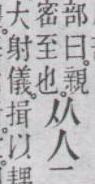 部曰。親
密至也。从人一
大射儀。揖以耦